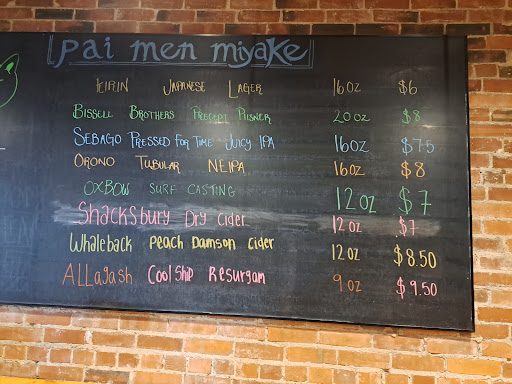 pai men miyake
KIRIN JAPANESE LAGER 16oz $6
BISSELL BROTHERS PRECEPT PILSNER 20oz $8
SEBAGO PRESSED FOR TIME JUICY IPA 16oz $7.5
ORONO TUBULAR NEIPA 16oz $8
OXBOW SURF CASTING 12oz $7
Shacksbury Dry Cider 12oz $7
Whaleback Peach Damson Cider 12oz $8.50
ALLagash Coolship Resurgam 9oz $9.50